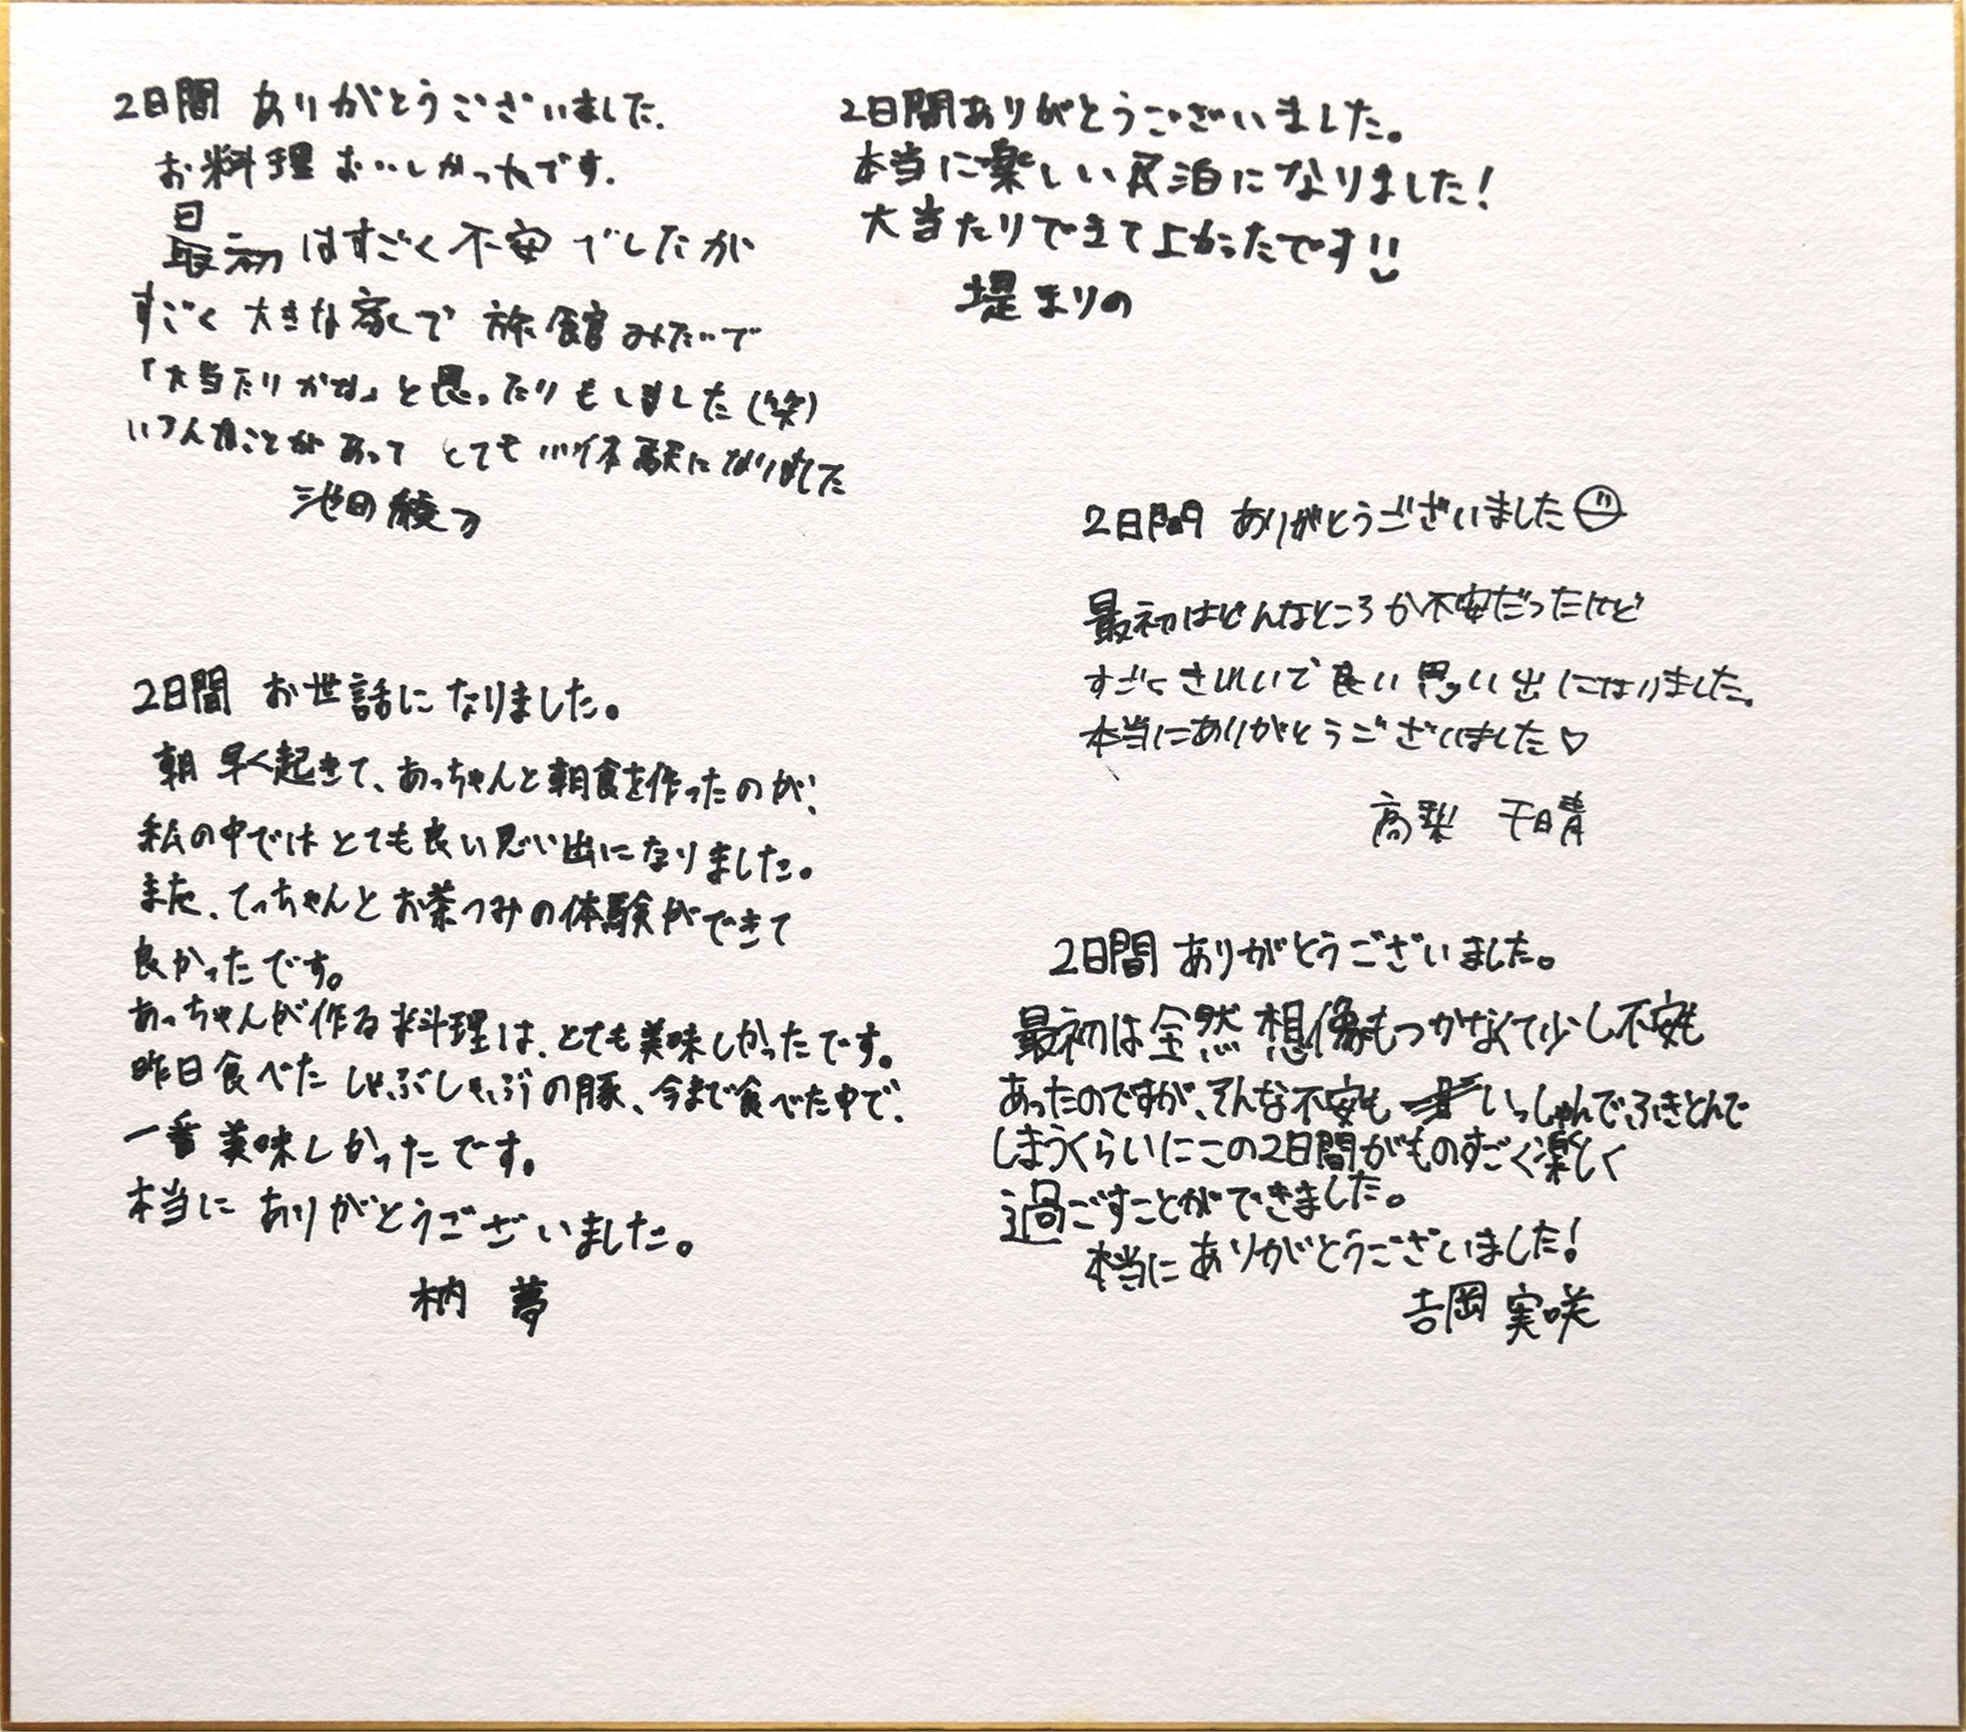 2日間 ありがとうございました.
お料理 おいしかったです.
最初はすごく不安でしたが
すごく 大きな家で 旅館みたいで
「大当たりかな」と思ったりもしました(笑)
いろんなことがあって とても いい体験になりました
池田綾乃
2日間ありがとうございました。
本当に楽しい民泊になりました!
大当たりできてよかったです!!
堤まりの
2日間 ありがとうございました
最初はどんなところか不安だったけど
すごくきれいで良い思い出になりました。
本当にありがとうございました♡
高梨 千晴
2日間 お世話になりました。
朝早く起きて、あっちゃんと朝食を作ったのが、
私の中ではとても良い思い出になりました。
また、てっちゃんとお茶つみの体験ができて
良かったです。
あっちゃんが作る料理は、とても美味しかったです。
昨日食べたしゃぶしゃぶの豚、今まで食べた中で、
一番美味しかったです。
本当に ありがとうございました。
柄 夢
2日間 ありがとうございました。
最初は全然想像もつかなくて少し不安も
あったのですが、そんな不安も いっしゅんでふきとんで
しまうくらいにこの2日間がものすごく楽しく
過ごすことができました。
本当にありがとうございました!
吉岡 実咲